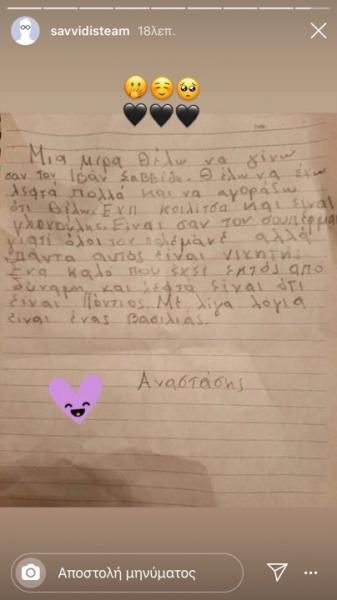 savvidisteam 18λεπ.
Μια μέρα θέλω να γίνω
σαν τον Ιβάν Σαββίδη. Θέλω να έχω
λεφτά πολλά και να αγοράζω
ότι θέλω. κοιλίτσα και είναι
γλυκούλης. Είναι σαν τον σούπερμαν
γιατί όλοι τον πολεμάνε αλλά
πάντα αυτός είναι νικητής
Ένα καλό που έχει εκτός από
δύναμη και λεφτά είναι ότι
είναι Πόντιος. Με λίγα λόγια
είναι ένας Βασιλιάς.
Αναστάσης
Αποστολή μηνύματος